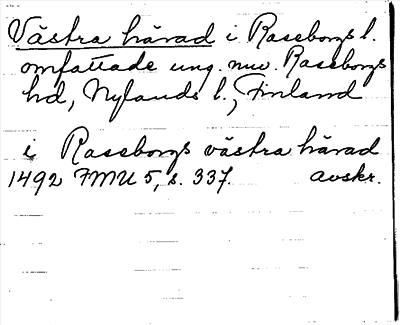 Västra härad i Raseborgs l.
omfattade ung. nuv. Raseborgs
hd, Nylands l., Finland
i Raseborgs västra härad
1492 FMU 5, s. 337. avskr.